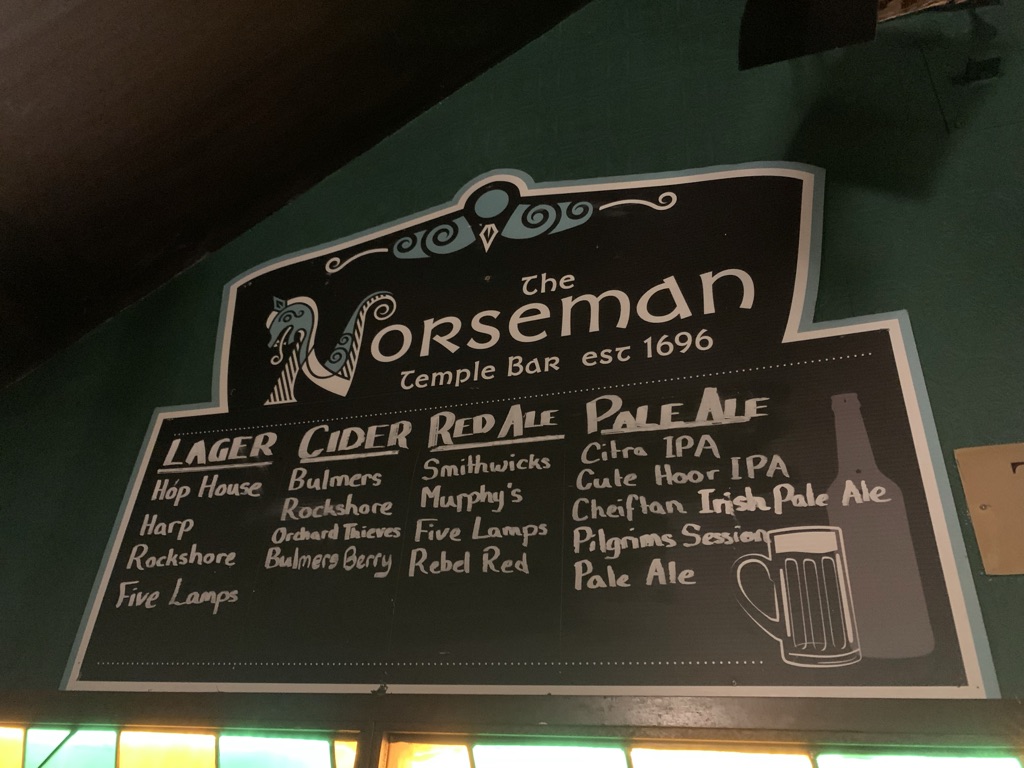 The
Norseman
Temple Bar est 1696
LAGER
Hóp House
Harp
Rockshore
Five Lamps
CIDER
Bulmers
Rockshore
Orchard Thieves
Bulmers Berry
RED ALE
Smithwicks
Murphy's
Five Lamps
Rebel Red
PALE ALE
Citra IPA
Cute Hoor IPA
Cheiftan Irish Pale Ale
Pilgrims Session
Pale Ale